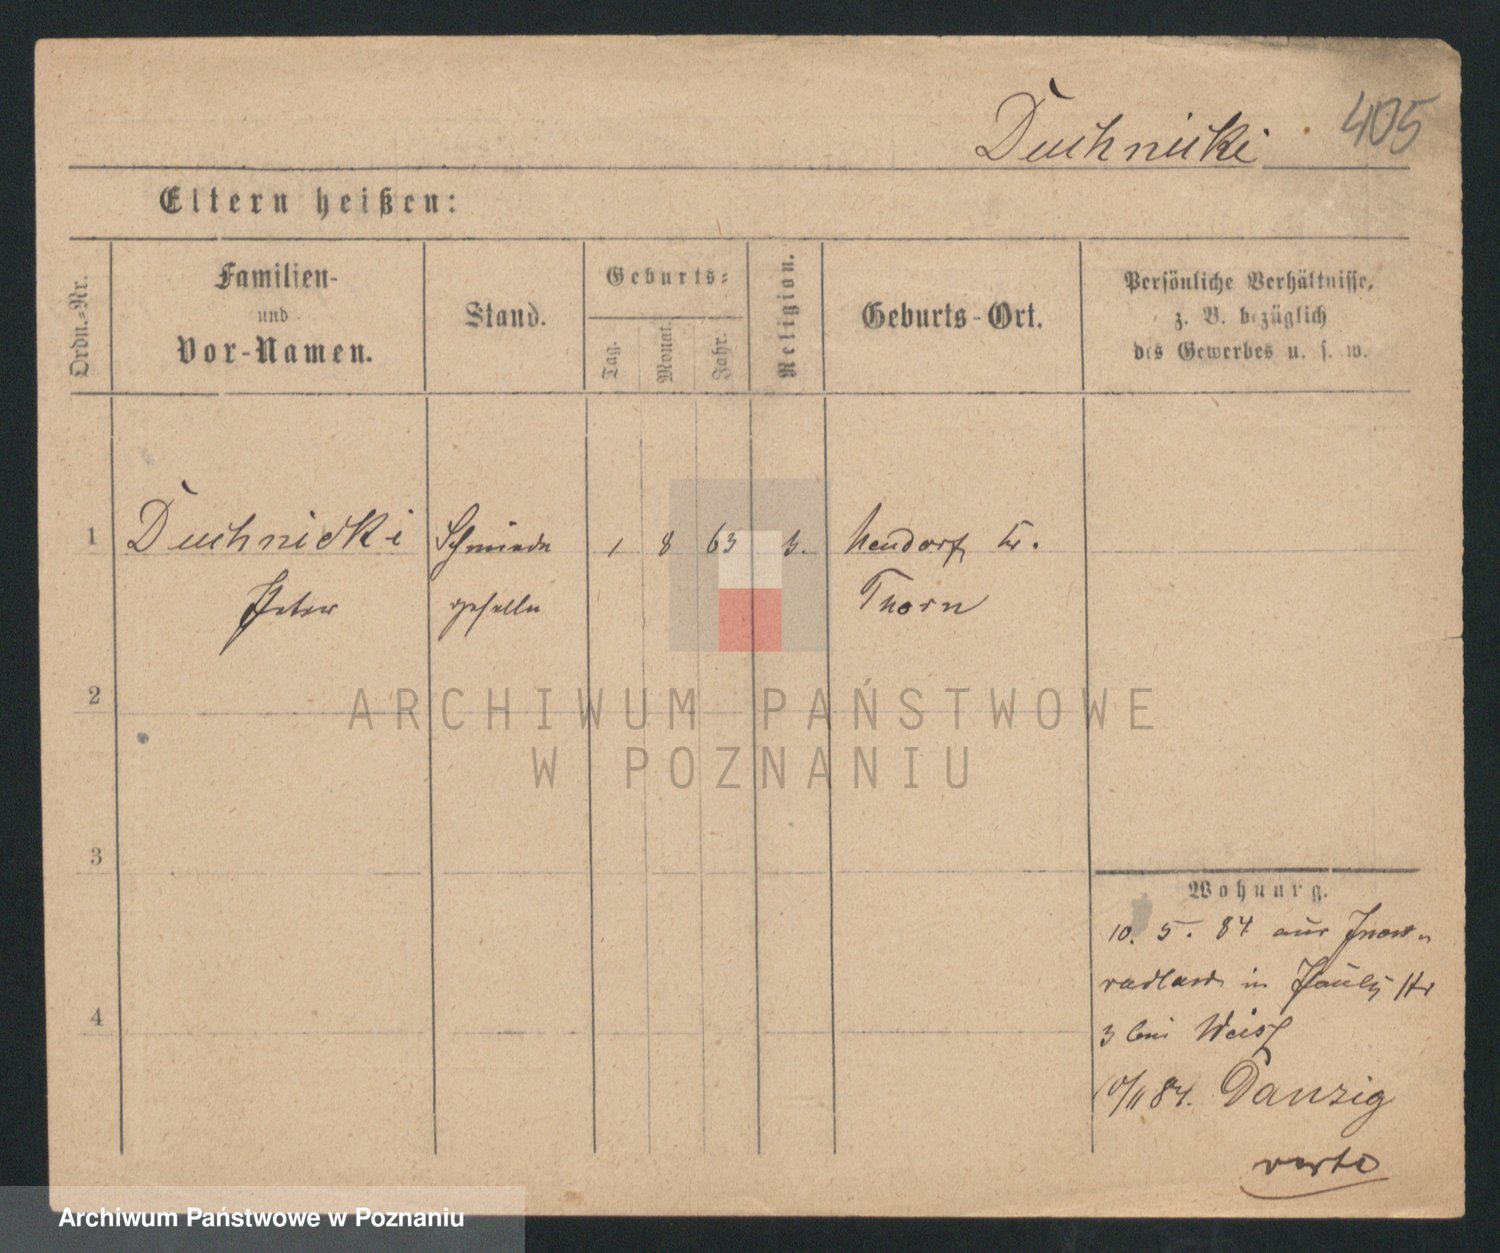 Duchnicki 405
Eltern heißen:
Ordn.-Nr.
Familien-
und
Vor-Namen.
Stand.
Geburts-
Tag.
Monat.
Jahr.
Religion.
Geburts-Ort.
Persönliche Verhältnisse,
z. B. bezüglich
des Gewerbes u. s. w.
1 Duchnicki Schmiede 1 8 63 Neudorf Kr.
Peter geselle Thorn
2
ARCHIWUM PAŃSTWOWE
W POZNANIU
3
4
Wohnung.
10. 5. 84 aus Inow-
in Pauli Str
3 bei Weiss
10/11 84. Danzig
verte
Archiwum Państwowe w Poznaniu